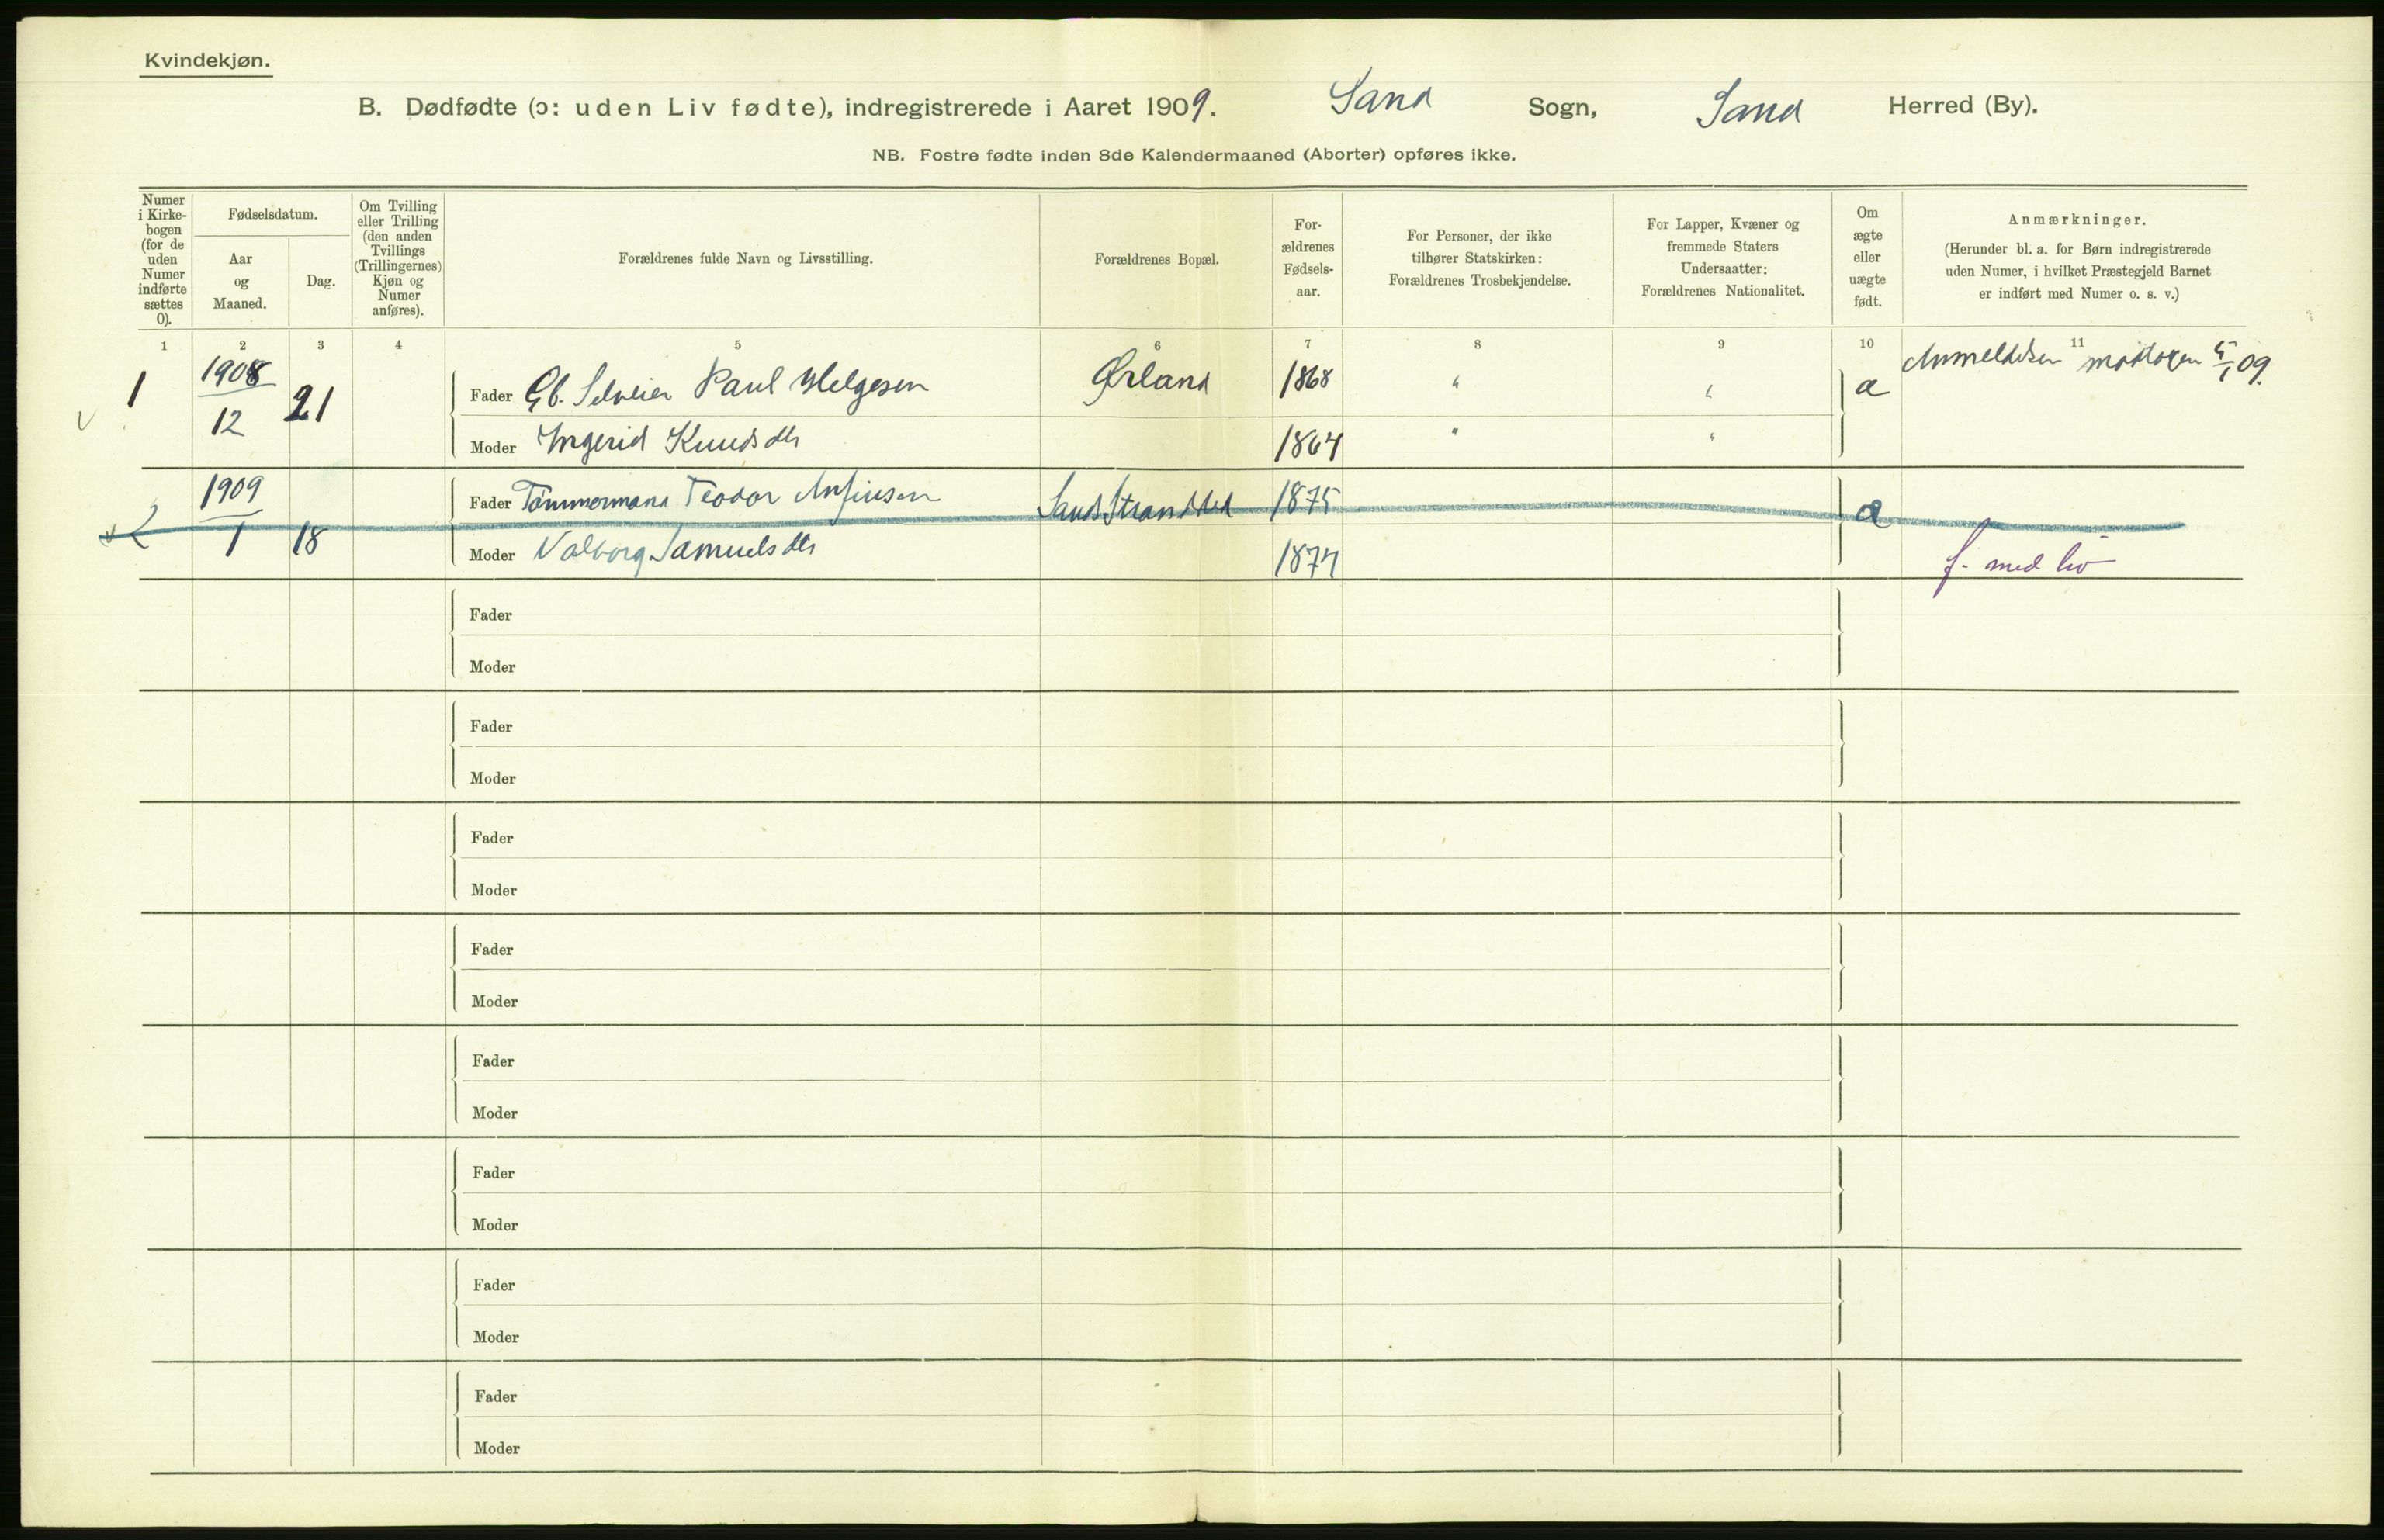 Kvindekjøn.
B. Dødfødte (ɔ: uden Liv fødte), indregistrerede i Aaret 1909. Sand Sogn, Sand Herred (By).
NB. Fostre fødte inden 8de Kalendermaaned (Aborter) opføres ikke.
Numer
i Kirke-
bogen
(for de
uden
Numer
indførte
sættes
0).
Fødselsdatum.
Aar
og
Maaned.
Dag.
Om Tvilling
eller Trilling
(den anden
Tvillings
(Trillingernes)
Kjøn og
Numer
anføres).
Forældrenes fulde Navn og Livsstilling.
Forældrenes Bopæl.
For-
ældrenes
Fødsels-
aar.
For Personer, der ikke
tilhører Statskirken:
Forældrenes Trosbekjendelse.
For Lapper, Kvæner og
fremmede Staters
Undersaatter:
Forældrenes Nationalitet.
Om
ægte
eller
uægte
født.
Anmærkninger.
(Herunder bl. a. for Børn indregistrerede
uden Numer, i hvilket Præstegjeld Barnet
er indført med Numer o. s. v.)
1 2 3 4 5 6 7 8 9 10 11
1 1908 12 21 Fader Gb. Selveier Paul Helgesen Ørland 1868 " " a Anmeldelsen modtagen 5/1 09.
Moder Ingerid Knudsdtr 1864 " "
2 1909 1 18 Fader Tømmermand Teodor Anfinsen Sands Strandsted 1875 a
Moder Valborg Samuelsdtr 1874 f. med liv
Fader
Moder
Fader
Moder
Fader
Moder
Fader
Moder
Fader
Moder
Fader
Moder
Fader
Moder
Fader
Moder